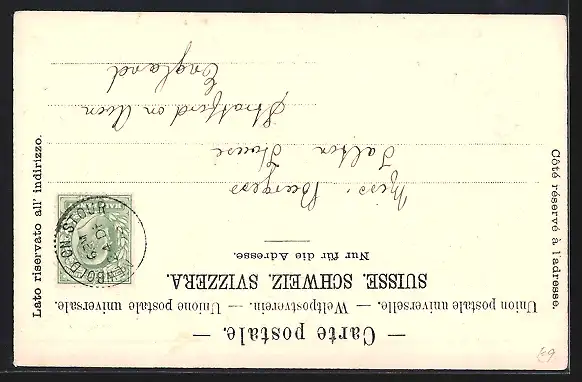 — Carte postale. —
Union postale universelle. — Weltpostverein. — Unione postale universale.
SUISSE. SCHWEIZ. SVIZZERA.
Nur für die Adresse.
Côté réservé à l'adresse.
Lato riservato all' indirizzo.
Miss. Burgess
House
Stratford on Avon
England
ON-STOUR